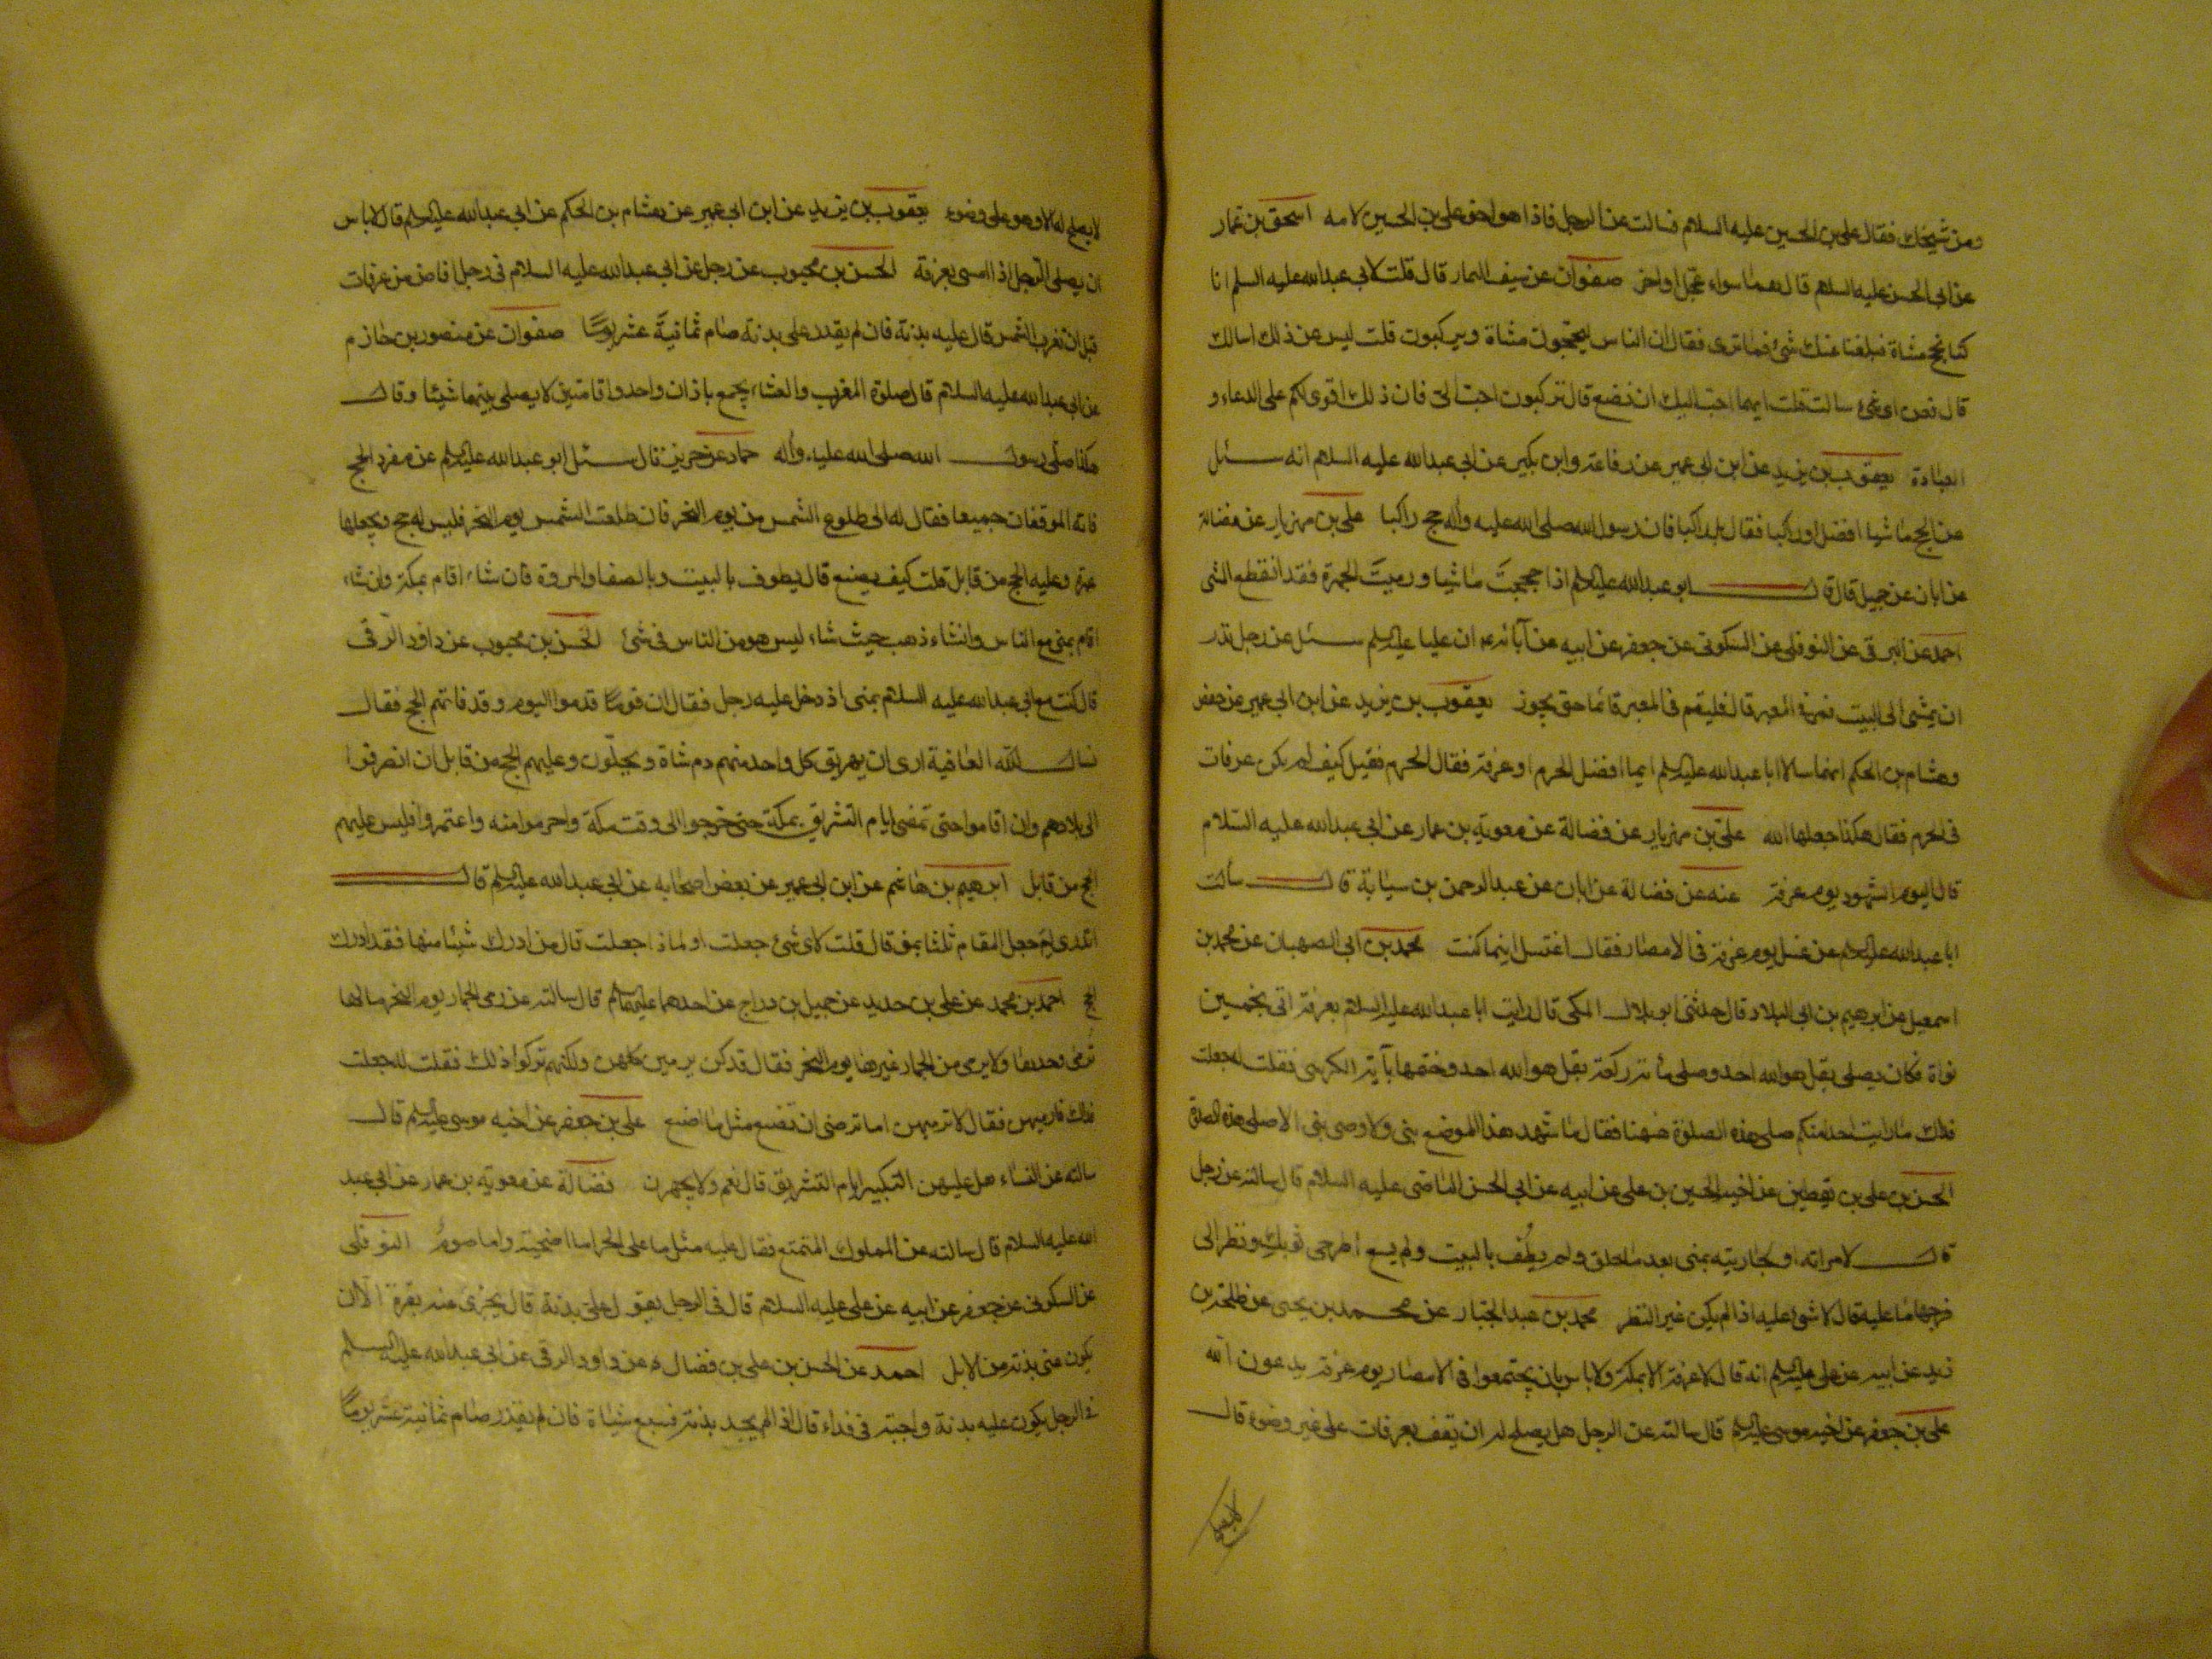 ومن شيخك فقال علي بن الحسين عليه السلام فسالت عن الرجل فاذا هو اخو علي بن الحسين لامه اسحق بن عمار
عن ابي الحسن عليه السلام قال هما سواء عجل او اخر صفوان عن سيف التمار قال قلت لابي عبدالله عليه السلم انا
كنا نحج مشاة فبلغنا عنك شئ فما ترى فقال ان الناس ليحجون مشاة ويركبون قلت ليس عن ذلك اسالك
قال فعن اي شئ سالت قلت ايهما احب اليك ان نصنع قال تركبون احب الي فان ذلك اقوى لكم على الدعاء و
العبادة يعقوب بن يزيد عن ابن ابي عمير عن رفاعة وابن بكير عن ابي عبدالله عليه السلام انه سئل
عن الحج ماشيا افضل او راكبا فقال بل راكبا فان رسول الله صلى الله عليه وآله حج راكبا علي بن مهزيار عن فضالة
عن ابان عن جميل قال قال ابو عبدالله عليه السلم اذا حججت ماشيا ورميت الجمرة فقد انقطع المشى
احمد عن البرقي عن النوفلي عن السكوني عن جعفر عن ابيه عن آبائه ان عليا عليه السلم سئل عن رجل نذر
ان يمشى الى البيت فمر في المعبر قال فليقم في المعبر قائما حتى يجوز يعقوب بن يزيد عن ابن ابي عمير عن حفص
وهشام بن الحكم انهما سالا ابا عبدالله عليه السلم ايما افضل الحرم او عرفة فقال الحرم فقيل كيف لم يكن عرفات
في الحرم فقال هكذا جعلها الله علي بن مهزيار عن فضالة عن معوية بن عمار عن ابي عبدالله عليه السلام
قال اليوم المشهود يوم عرفة عنه عن فضالة عن ابان عن عبد الرحمن بن سيابة قال سألت
ابا عبدالله عليه السلم عن غسل يوم عرفة في الامصار فقال اغتسل اينما كنت محمد بن ابي الصهبان عن محمد بن
اسمعيل عن ابرهيم بن ابي البلاد قال حدثني ابو بلال المكي قال رايت ابا عبدالله عليه السلام بعرفة اتى بخمسين
نواة فكان يصلي بقل هو الله احد وصلى مأة ركعة بقل هو الله احد وختمها بآية الكرسي فقلت له جعلت
فداك ما رايت احدا منكم صلى هذه الصلوة ههنا فقال ما شهد هذا الموضع نبي ولا وصي نبي الا صلى هذه الصلوة
الحسن بن علي بن يقطين عن اخيه الحسين بن علي عن ابيه عن ابي الحسن الماضي عليه السلام قال سالته عن رجل
قال لامراته او لجاريته بمنى بعد ما حلق ولم يطف بالبيت ولم يسع اطرحي ثوبك ونظر الى
فرجها ما عليه قال لا شئ عليه اذا لم يكن غير النظر محمد بن عبد الجبار عن محمد بن يحيى عن طلحة بن
زيد عن ابيه عن علي عليه السلم انه قال لا عرفة الا بمكة ولا باس بان يجتمعوا في الامصار يوم عرفة يدعون الله
علي بن جعفر عن اخيه موسى عليه السلم قال سالته عن الرجل هل يصلح له ان يقف بعرفات على غير وضوء قال
لا يصلح
لا يصلح له الا وهو على وضوء يعقوب بن يزيد عن ابن ابي عمير عن هشام بن الحكم عن ابي عبدالله عليه السلم قال لا باس
ان يصلي الرجل اذا امسى بعرفة الحسن بن محبوب عن رجل عن ابي عبدالله عليه السلام في رجل افاض من عرفات
قبل ان تغرب الشمس قال عليه بدنة فان لم يقدر على بدنة صام ثمانية عشر يوما صفوان عن منصور بن حازم
عن ابي عبدالله عليه السلام قال صلوة المغرب والعشاء يجمع باذان واحد واقامتين لا يصلي بينهما شيئا وقال
هكذا صلى رسول الله صلى الله عليه وآله حماد عن حريز قال سئل ابو عبدالله عليه السلم عن مفرد الحج
فاته الموقفان جميعا فقال له الى طلوع الشمس من يوم النحر فان طلعت الشمس يوم النحر فليس له حج ويجعلها
عمرة وعليه الحج من قابل قلت كيف يصنع قال يطوف بالبيت وبالصفا والمروة فان شاء اقام بمكة وان شاء
اقام بمنى مع الناس وان شاء ذهب حيث شاء ليس هو من الناس في شئ الحسن بن محبوب عن داود الرقي
قال كنت مع ابي عبدالله عليه السلام بمنى اذ دخل عليه رجل فقال ان قوما قدموا اليوم وقد فاتهم الحج فقال
نسال الله العافية ارى ان يهريق كل واحد منهم دم شاة ويحلون وعليهم الحج من قابل ان انصرفوا
الى بلادهم وان اقاموا حتى تمضى ايام التشريق بمكة حتى خرجوا الى وقت مكة واحرموا منه واعتمروا فليس عليهم
الحج من قابل ابرهيم بن هاشم عن ابن ابي عمير عن بعض اصحابه عن ابي عبدالله عليه السلم قال
اتدري لم جعل المقام ثلثا بمنى قال قلت لاي شئ جعلت او لماذا جعلت قال من ادرك شيئا منها فقد ادرك
الحج احمد بن محمد عن علي بن حديد عن جميل بن دراج عن احدهما عليهما السلم قال سالته عن رمي الجمار يوم النحر مالها
ترمى وحدها ولا يرمى من الجمار غيرها يوم النحر فقال قد كن يرمين كلهن ولكنهم تركوا ذلك فقلت له جعلت
فداك فارميهن فقال لا ترميهن اما ترضى ان تصنع مثل ما اصنع علي بن جعفر عن اخيه موسى عليه السلم قال
سالته عن النساء هل عليهن التكبير ايام التشريق قال نعم ولا يجهرن فضالة عن معوية بن عمار عن ابي عبد
الله عليه السلام قال سالته عن المملوك المتمتع فقال عليه مثل ما على الحر اما اضحية واما صوم النوفلي
عن السكوني عن جعفر عن ابيه عن علي عليه السلام قال في الرجل يقول علي بدنة قال يجزى عنه بقرة الا ان
يكون عنى بدنة من الابل احمد عن الحسن بن علي بن فضال عن داود الرقي عن ابي عبدالله عليه السلم
في الرجل يكون عليه بدنة واجبة في فداء قال اذا لم يجد بدنة فسبع شياة فان لم يقدر صام ثمانية عشر يوما